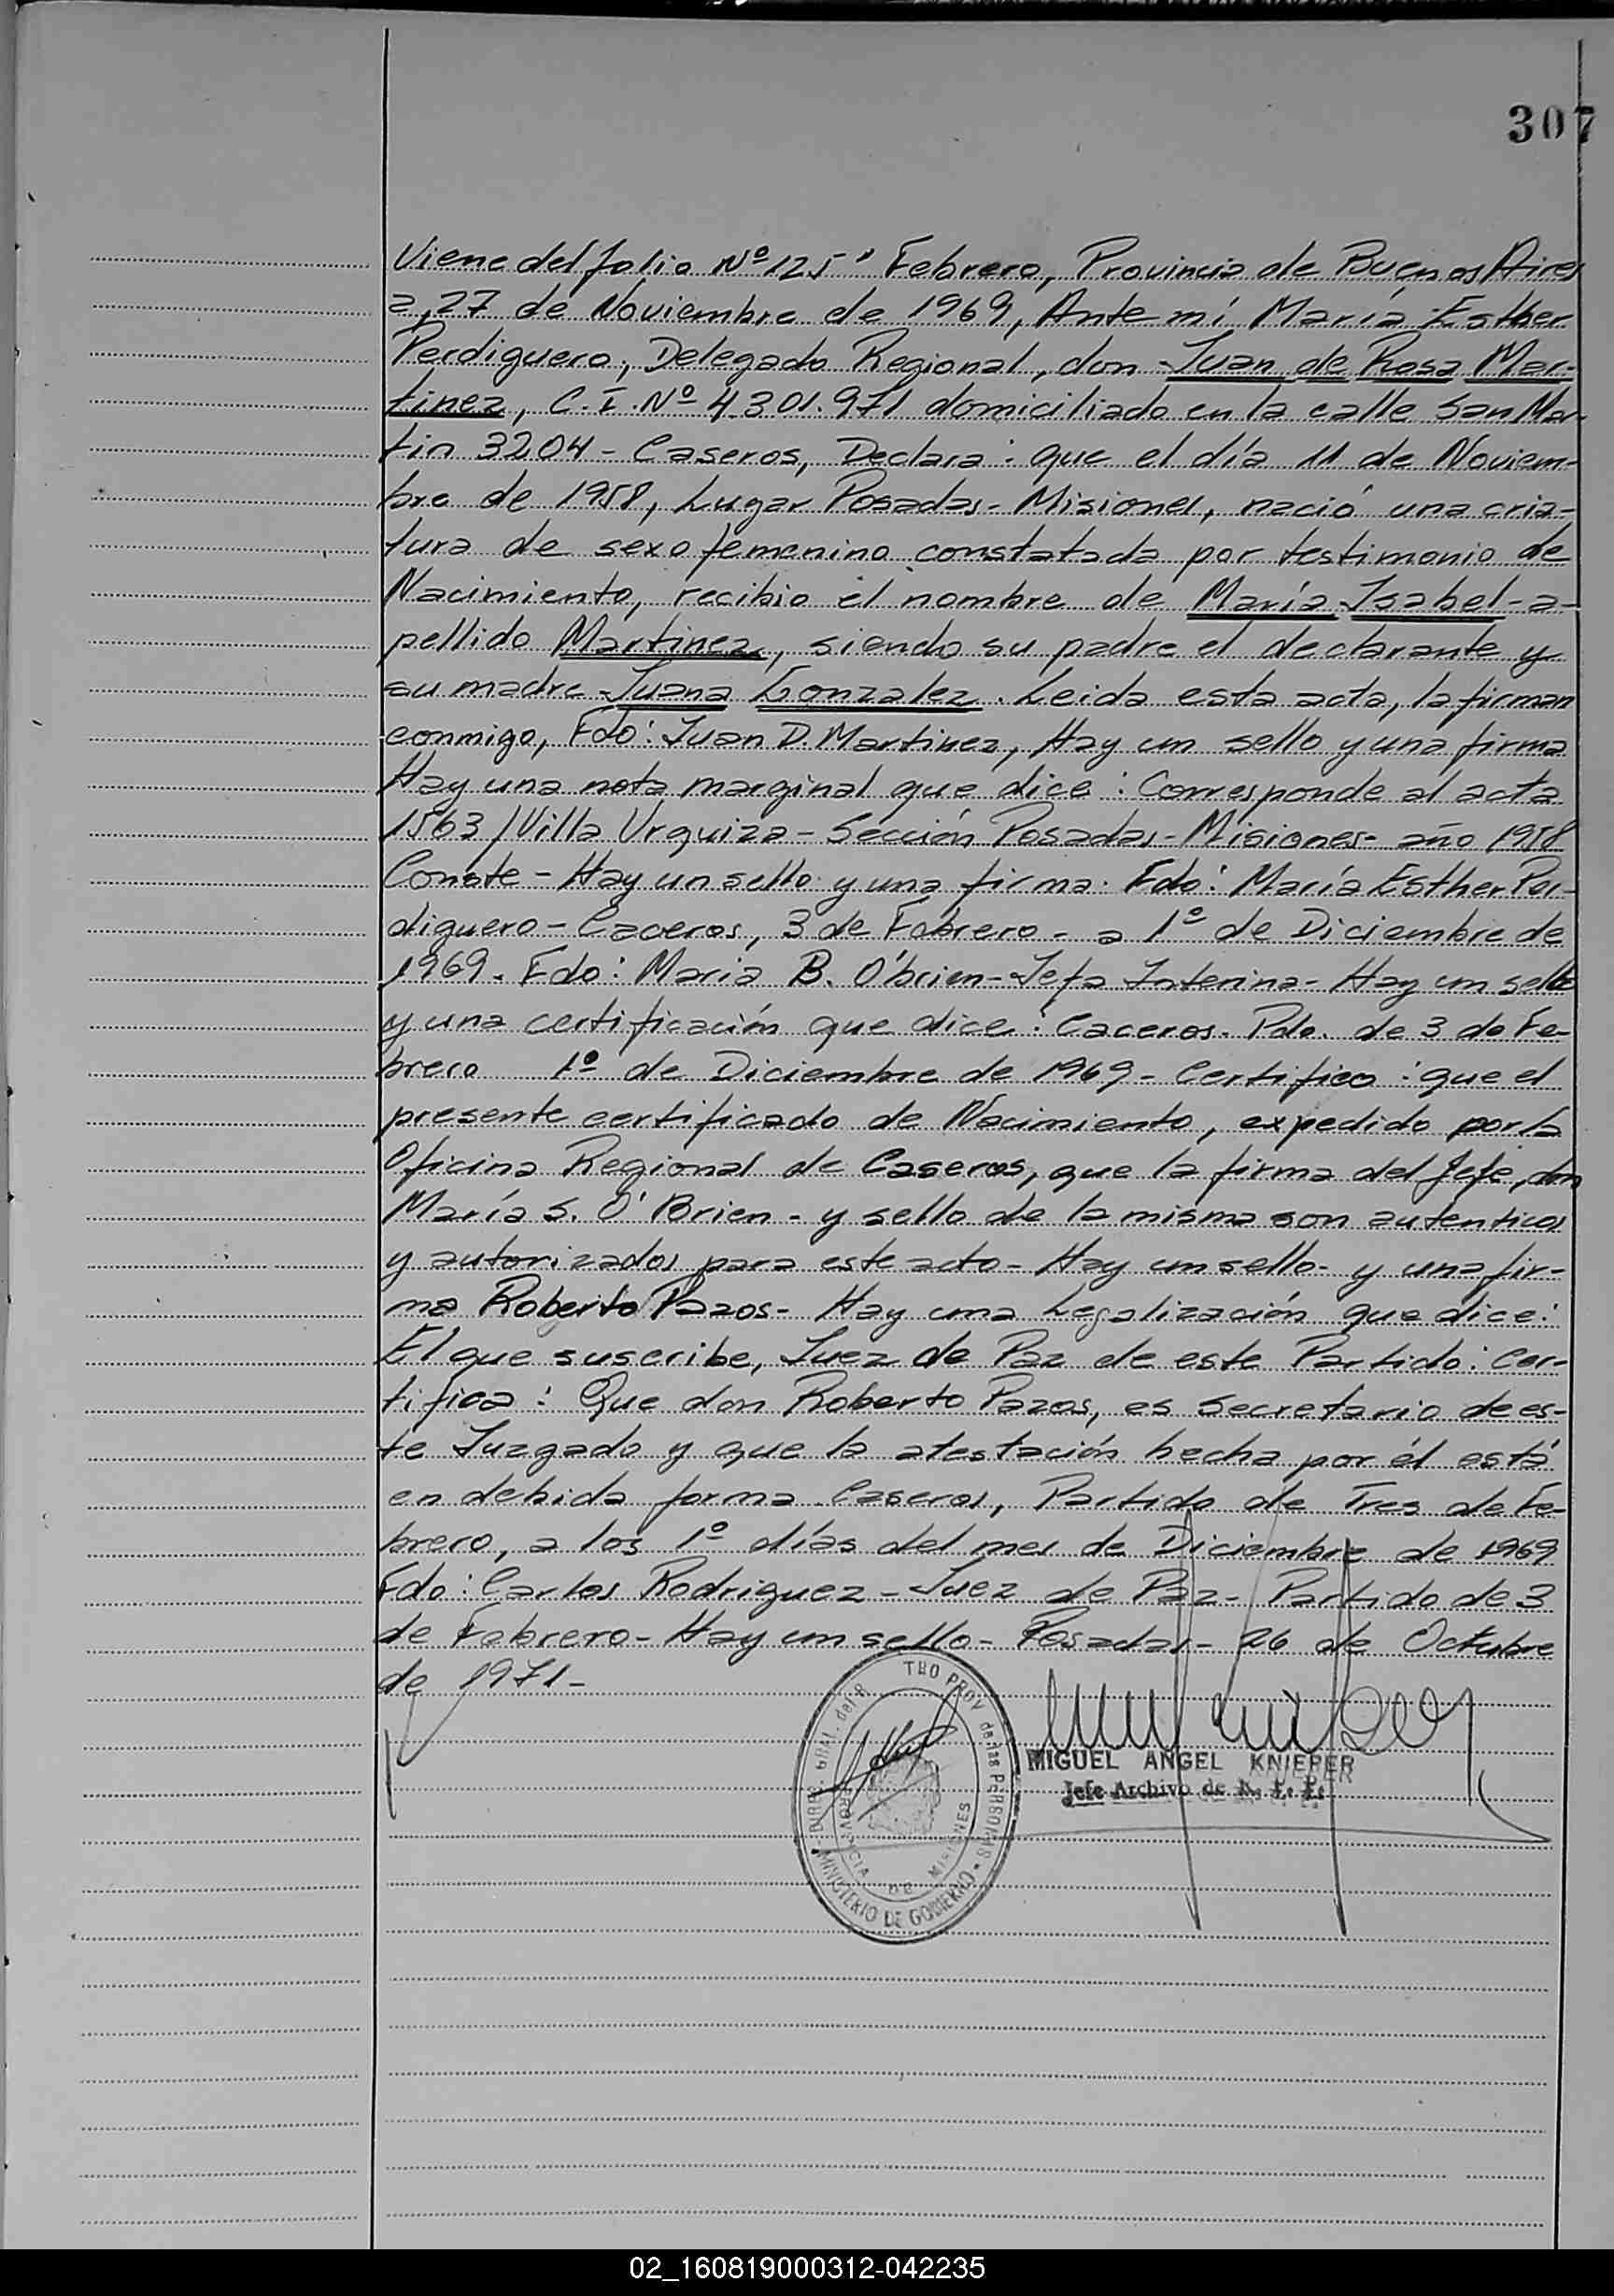 307
Viene del folio Nº 125" Febrero, Provincia de Buenos Aires
a, 27 de Noviembre de 1969, Ante mí María Esther
Perdiguero, Delegado Regional, don Juan de Rosa Mar-
tinez, C.I. Nº 4.301.971 domiciliado en la calle San Mar-
tin 3204 - Caseros, Declara: que el día 11 de Noviem-
bre de 1958, Lugar Posadas - Misiones, nació una cria-
tura de sexo femenino constatada por testimonio de
Nacimiento, recibio el nombre de María Isabel - a-
pellido Martinez, siendo su padre el declarante y
su madre Juana Gonzalez. Leida esta acta, la firman
conmigo, Fdo: Juan D. Martinez, Hay un sello y una firma
Hay una nota marginal que dice: Corresponde al acta
1563 / Villa Urquiza - Sección Posadas - Misiones - año 1958
Conste - Hay un sello y una firma. Fdo: María Esther Per-
diguero - Caceros, 3 de Febrero - a 1º de Diciembre de
1969. Fdo: Maria B. O'brien - Jefa Interina - Hay un sello
y una certificación que dice: Caceros. Pdo. de 3 de Fe-
brero 1º de Diciembre de 1969 - Certifico: que el
presente certificado de Nacimiento, expedido por la
Oficina Regional de Caseros, que la firma del Jefe, don
María S. O'Brien - y sello de la misma son autenticos
y autorizados para este acto - Hay un sello - y una fir-
ma Roberto Pazos - Hay una Legalización que dice:
El que suscribe, Juez de Paz de este Partido: Cer-
tifica: Que don Roberto Pazos, es Secretario de es-
te Juzgado y que la atestación hecha por él está
en debida forma. Caseros, Partido de Tres de Fe-
brero, a los 1º días del mes de Diciembre de 1969
Fdo: Carlos Rodriguez - Juez de Paz - Partido de 3
de Febrero - Hay un sello - Posadas - 26 de Octubre
de 1971 -
MIGUEL ANGEL KNIEPER
Jefe Archivo de
MINISTERIO DE GOBIERNO
PROVINCIA DE MISIONES
02_160819000312-042235